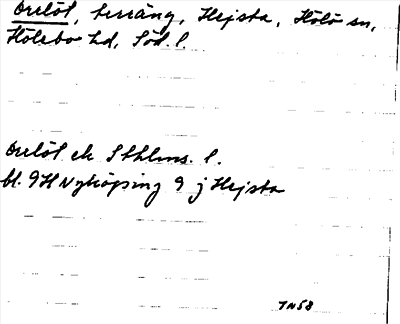 Orelöt, terräng, Hejsta, Hölö sn,
Hölebo hd, Söd. l.
Orelöt ek Sthlms. l.
bl. 9H Nyköping 9 j Hejsta
TN58